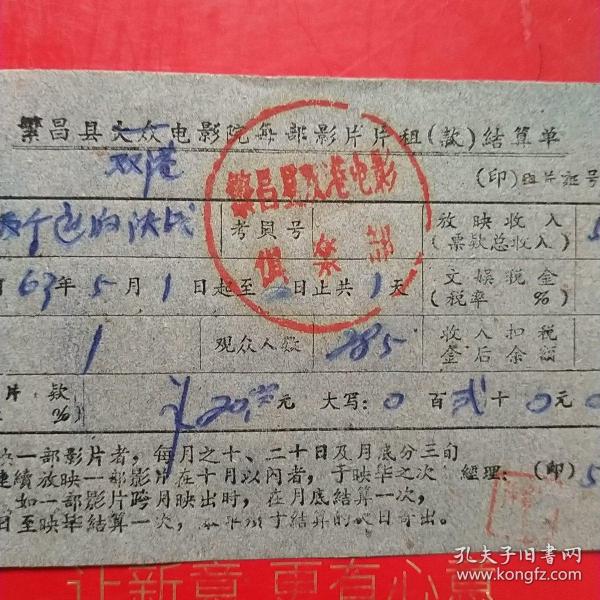 繁昌县大众电影院每部影片片租(款)结算单
双港
(印)租片证号
两个连的决战
考員号
放映收入
(票款总收入)
5
63年5月1日起至 日止共1天
文娱税金
(税率 %)
1
观众人数
285
收入扣税
金后余额
片 款
%)
20.00元 大写:0百贰十0元0
映一部影片者,每月之十、二十日及月底分三旬
連續放映一部影片在十月以内者,于映毕之次 經理: (印) 5
如一部影片跨月映出时,在月底結算一次,
日至映毕結算一次, 于结算的次日寄出。
繁昌县双港电影
俱乐部
让新意 更有心意
孔夫子旧書网
www.kongfz.com